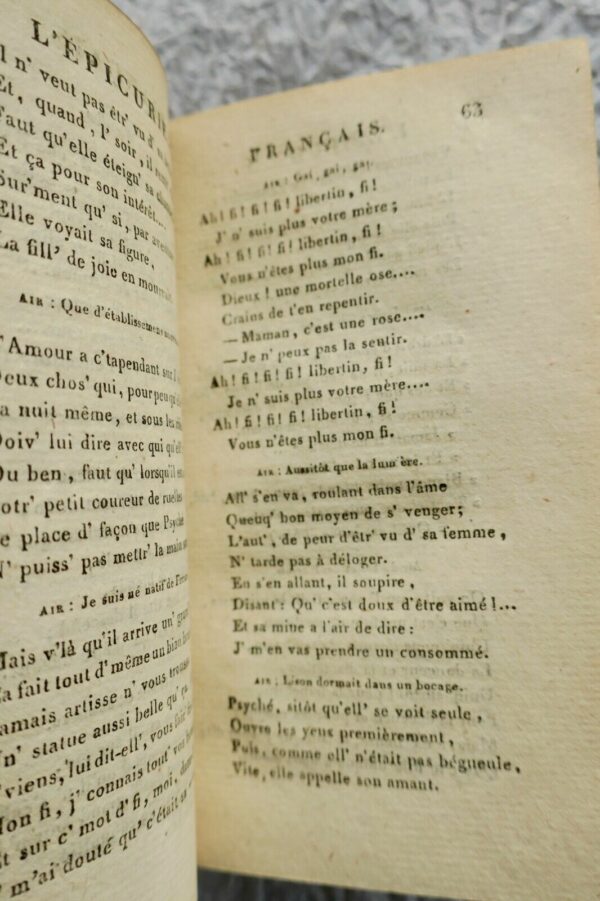 L'ÉPICURI
n' veut pas êtr' vu d'
Et, quand, l' soir, il
Faut qu'elle éteign' sa
Et ça pour son intérêt...
Sur'ment qu' si, par
Elle voyait sa figure,
La fill' de joie en
AIR : Que d'établissemens
L'Amour a c'tapendant sur
Deux chos' qui, pour peu qu'
La nuit même, et sous les
Doiv' lui dire avec qui qu'
Ou ben, faut qu' lorsqu'il
Notr' petit coureur de ruelles
Se place d' façon que Psyché
N' puiss' pas mettr' la main
AIR : Je suis né natif de
Mais v'là qu'il arrive un
Ça fait tout d' même un bien
Jamais artisse n' vous
Un' statue aussi belle qu' ça
Viens, lui dit-ell', vous
Mon fi, j' connais tout' vos
Et sur c' mot d' fi, moi,
m'ai douté qu' c'était sa
63
FRANÇAIS.
AIR : Gai, gai, gai,
Ah! fi! fi! fi! libertin, fi!
J' n' suis plus votre mère;
Ah! fi! fi! fi! libertin, fi!
Vous n'êtes plus mon fi.
Dieux! une mortelle ose....
Crains de t'en repentir.
— Maman, c'est une rose....
— Je n' peux pas la sentir.
Ah! fi! fi! fi! libertin, fi!
Je n' suis plus votre mère....
Ah! fi! fi! fi! libertin, fi!
Vous n'êtes plus mon fi.
AIR : Aussitôt que la lumière.
All' s'en va, roulant dans l'âme
Queuq' bon moyen de s' venger;
L'aut', de peur d'êtr' vu d' sa femme,
N' tarde pas à déloger.
En s'en allant, il soupire,
Disant : Qu' c'est doux d'être aimé!...
Et sa mine a l'air de dire :
J' m'en vas prendre un consommé.
AIR : Lison dormait dans un bocage.
Psyché, sitôt qu'ell' se voit seule,
Ouvre les yeux premièrement,
Puis, comme ell' n'était pas bégueule,
Vite, elle appelle son amant.